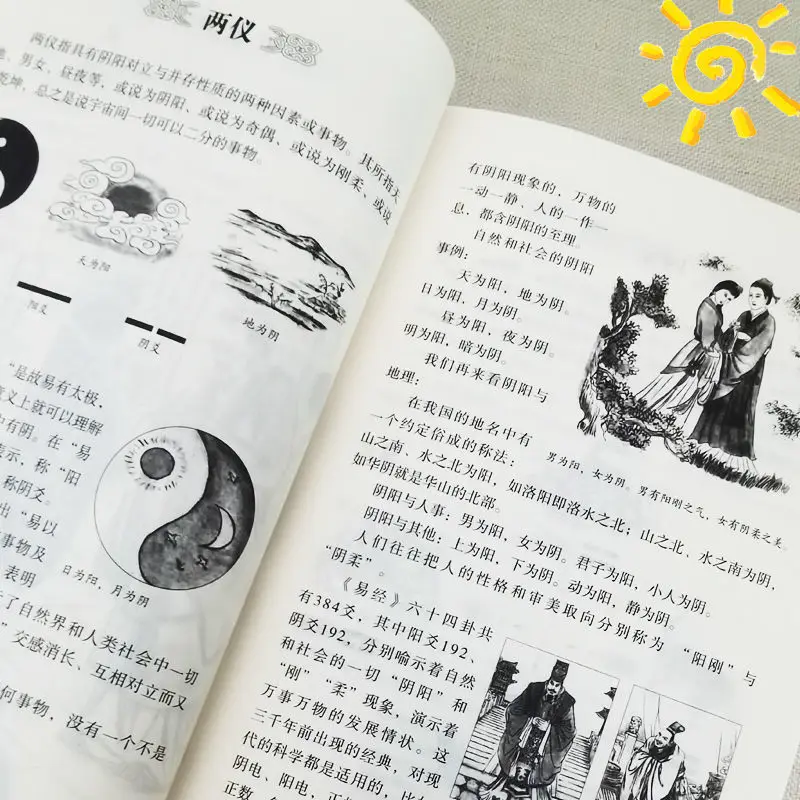 两仪
两仪指具有阴阳对立与并存性质的两种因素或事物。其所指天
地、男女、昼夜等，或说为阴阳、或说为奇偶、或说为刚柔、或说
乾坤，总之是说宇宙间一切可以二分的事物。
天为阳
地为阴
阳爻
阴爻
“是故易有太极，
意义上就可以理解
中有阴。在“易
表示，称“阳
称阴爻。
出“易以
事物及
表明
日为阳，月为阴
了自然界和人类社会中一切
”交感消长、互相对立而又
何事物，没有一个不是
有阴阳现象的，万物的
一动一静、人的一作一
息，都含阴阳的至理。
自然和社会的阴阳
事例：
天为阳，地为阴。
日为阳，月为阴。
昼为阳，夜为阴。
明为阳，暗为阴。
我们再来看阴阳与
地理：
在我国的地名中有
一个约定俗成的称法：
山之南、水之北为阳，如洛阳即洛水之北；山之北、水之南为阴，
如华阴就是华山的北部。
男为阳，女为阴。男有阳刚之气，女有阴柔之美。
阴阳与人事：男为阳，女为阴。君子为阳，小人为阴。
阴阳与其他：上为阳，下为阴。动为阳，静为阴。
人们往往把人的性格和审美取向分别称为“阳刚”与
“阴柔”。
《易经》六十四卦共
有384爻，其中阳爻192、
阴爻192，分别喻示着自然
和社会的一切“阴阳”和
“刚”“柔”现象，演示着
万事万物的发展情状。这
三千年前出现的经典，对现
代的科学都是适用的，比如
阴电、阳电，正
正数、